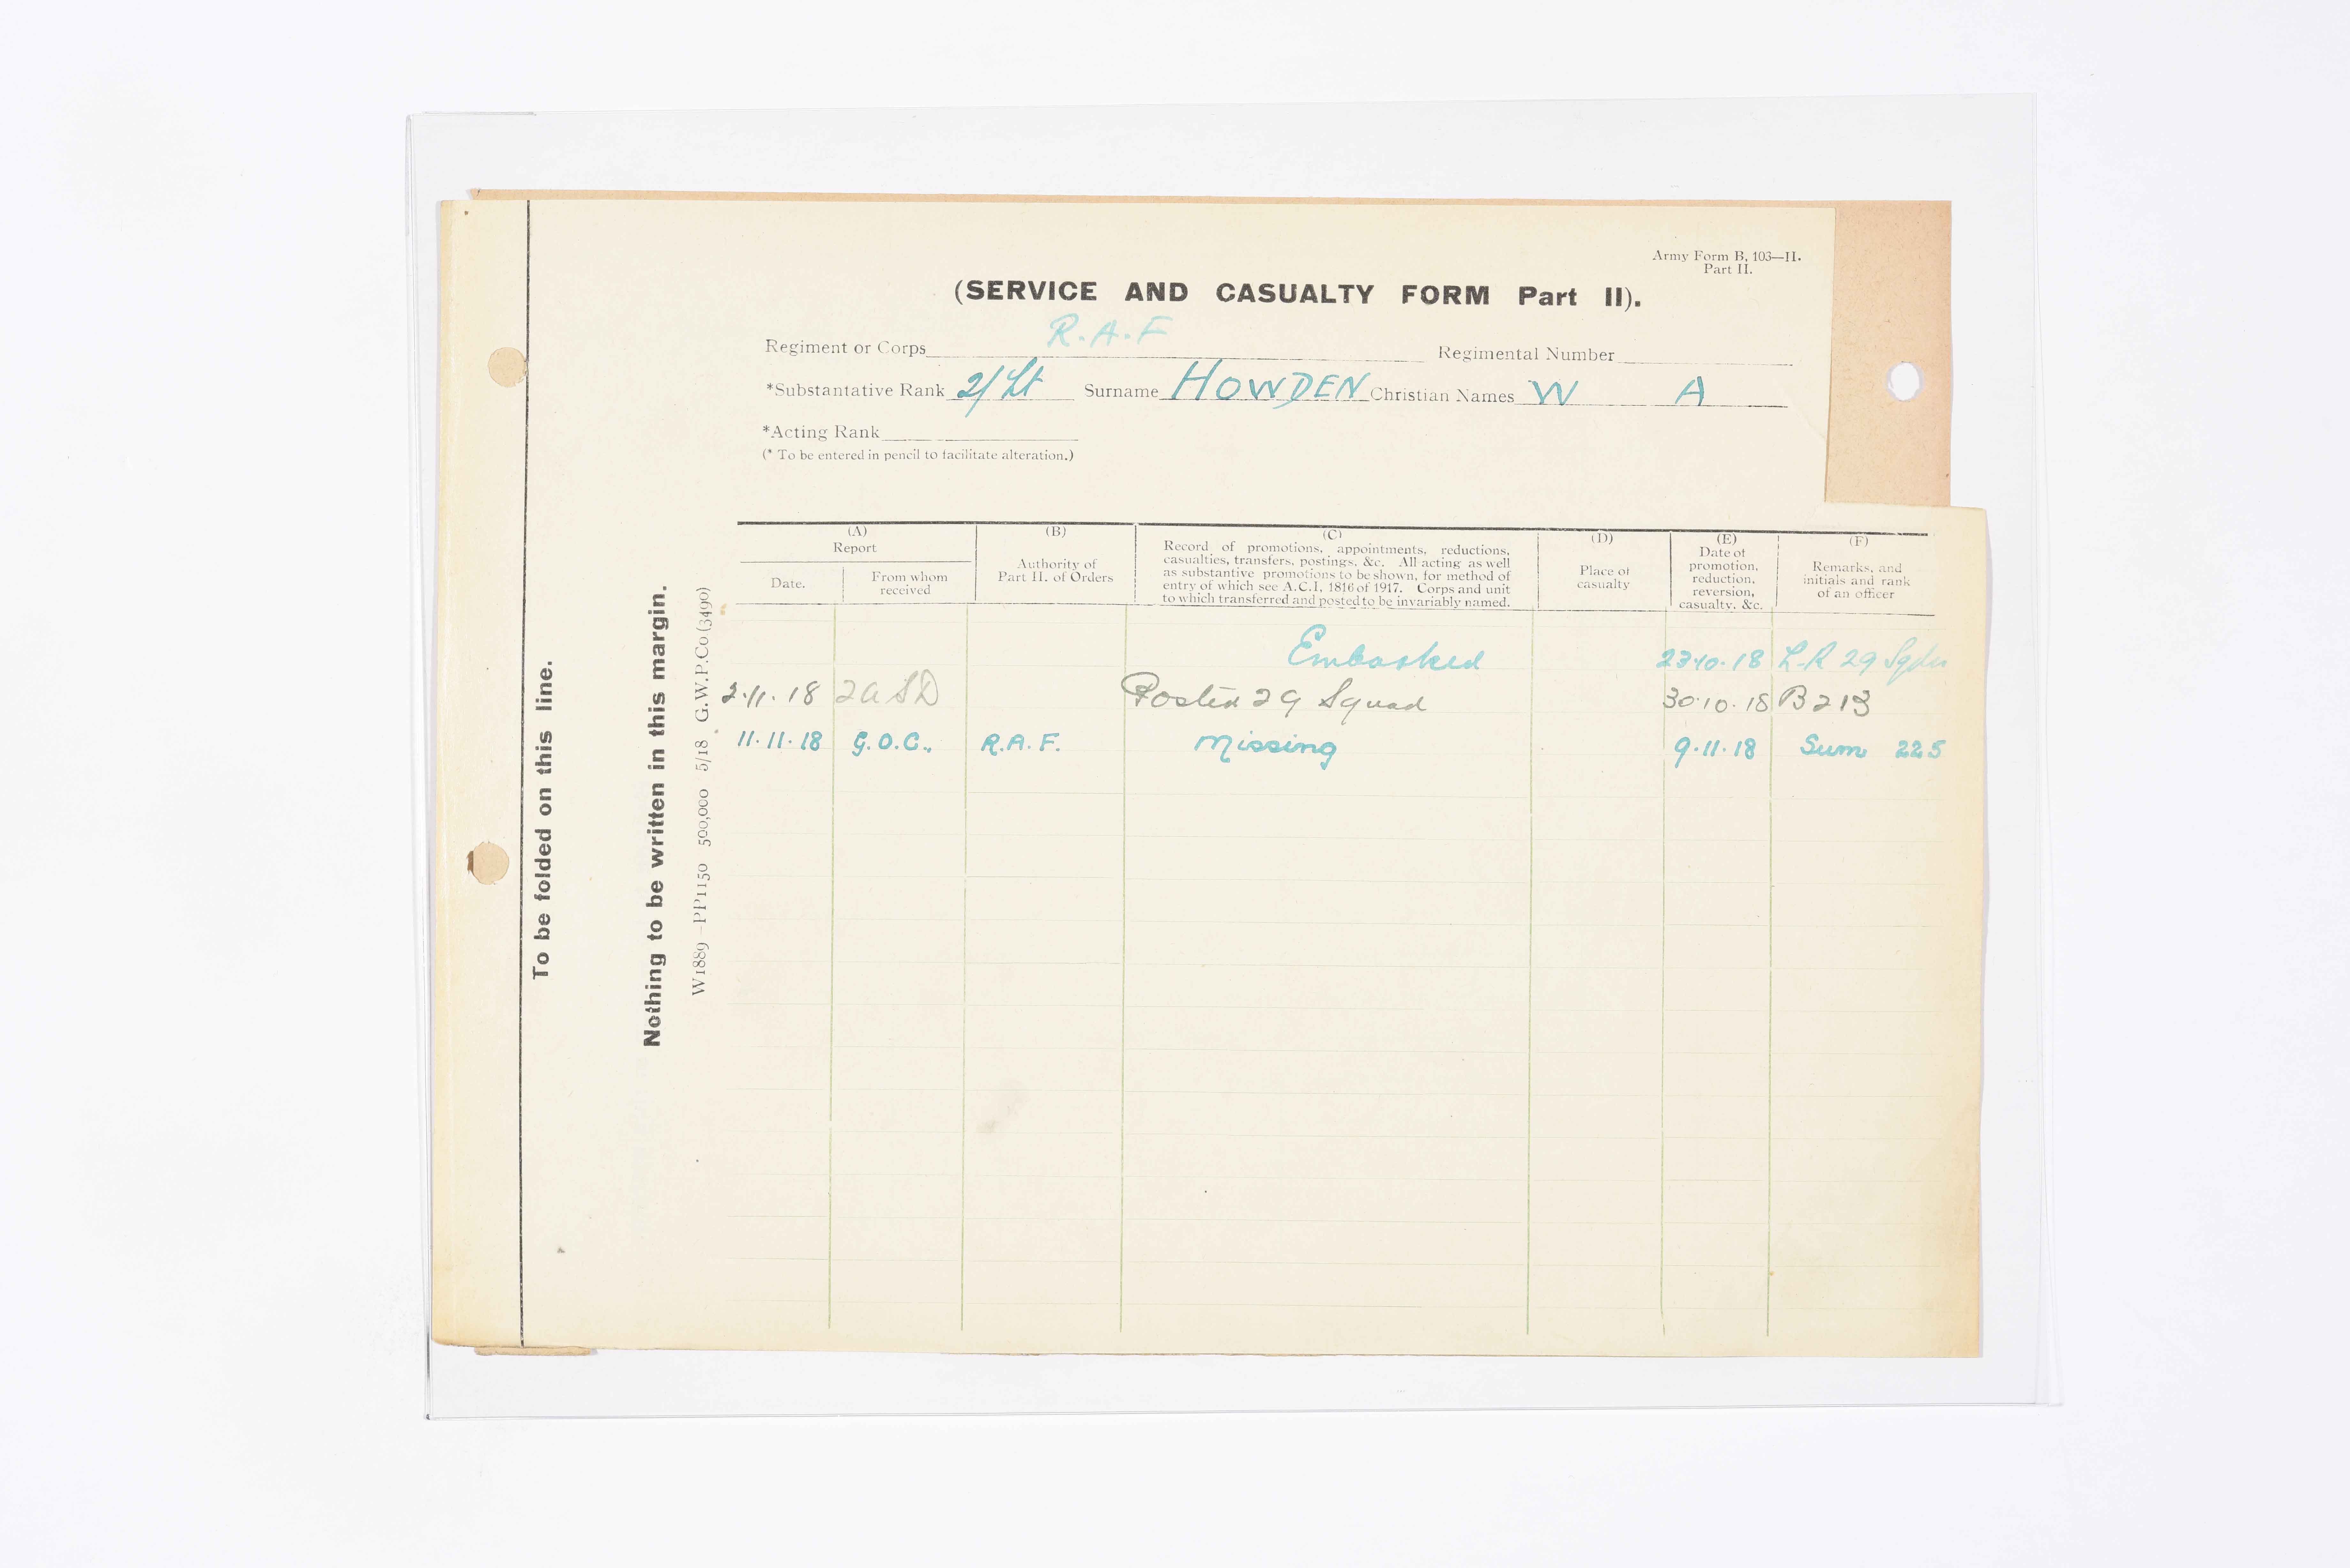 Army Form B, 103—II.
Part II.
(SERVICE AND CASUALTY FORM Part II).
Regiment or Corps R.A.F Regimental Number
*Substantative Rank 2/Lt Surname HOWDEN Christian Names W A
*Acting Rank
(* To be entered in pencil to facilitate alteration.)
(A) Report
Date.
From whom received
(B)
Authority of
Part II. of Orders
(C)
Record of promotions, appointments, reductions,
casualties, transfers, postings, &c. All acting as well
as substantive promotions to be shown, for method of
entry of which see A.C.I, 1816 of 1917. Corps and unit
to which transferred and posted to be invariably named.
(D)
Place of
casualty
(E)
Date of
promotion,
reduction,
reversion,
casualty, &c.
(F)
Remarks, and
initials and rank
of an officer
Embarked 23·10·18 L.R 29 Sqdn
2·11·18 2 ASD Posted 29 Squad 30·10·18 B213
11·11·18 G.O.C., R.A.F. Missing 9·11·18 Sum 225
To be folded on this line.
Nothing to be written in this margin.
W1889—PP1150 500,000 5/18 G.W.P.Co (3490)